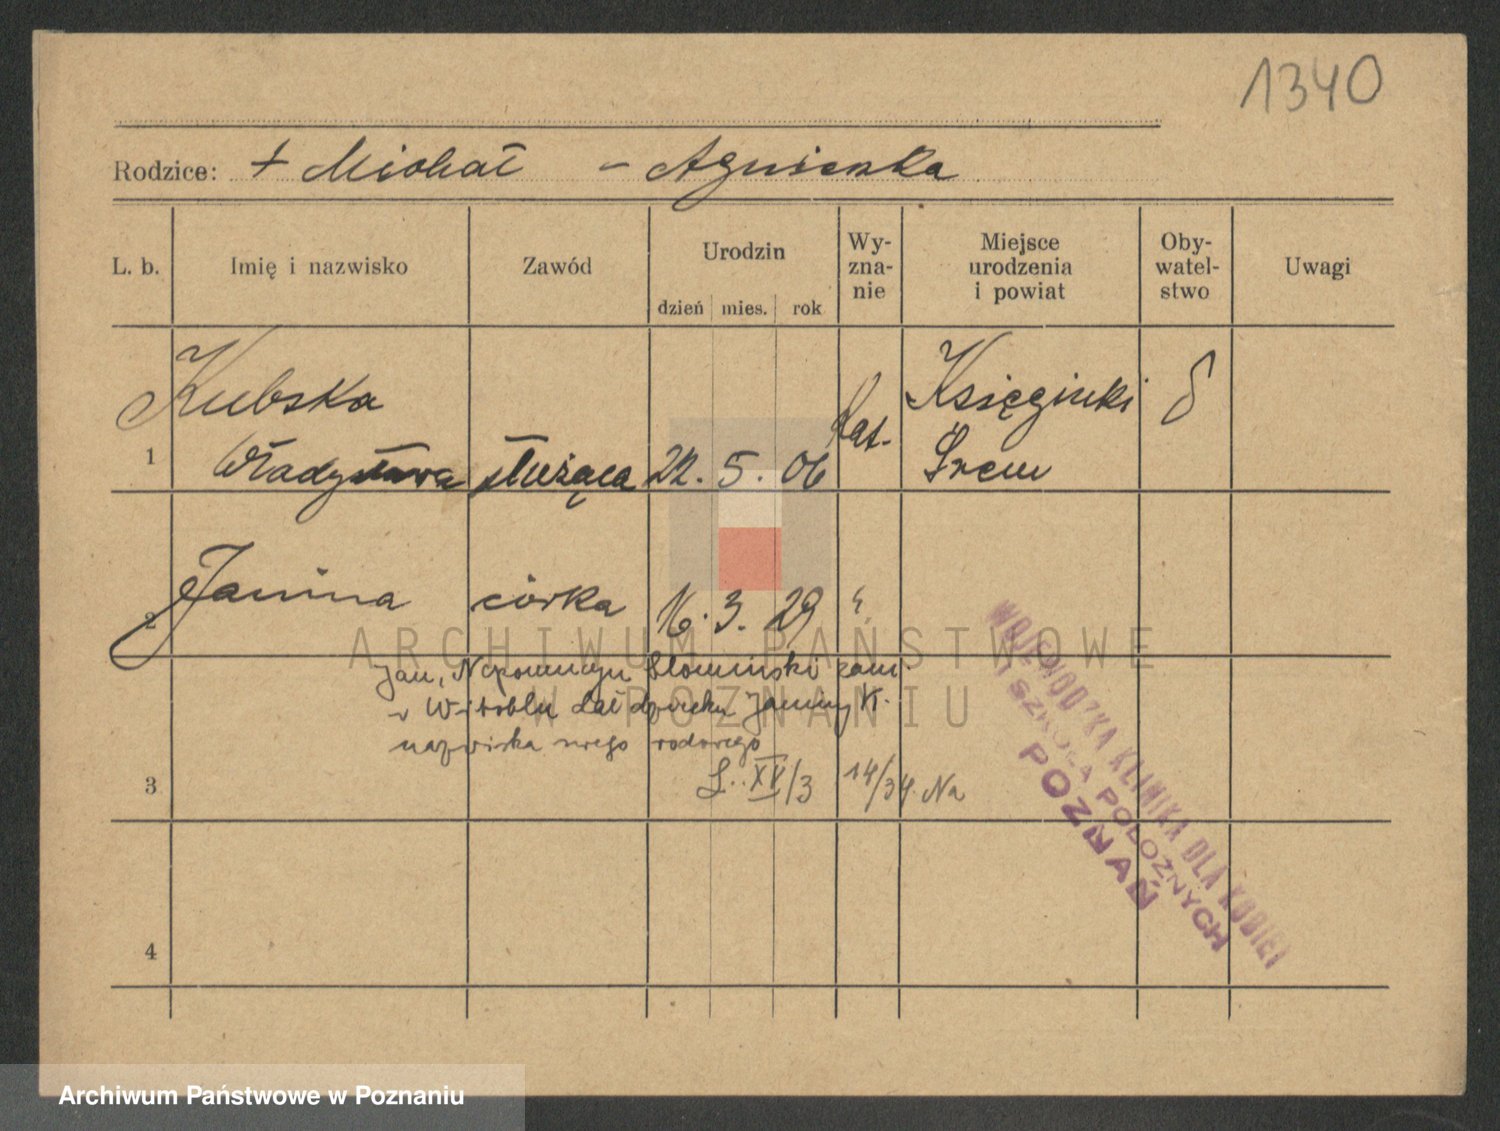 1340
Rodzice: + Michał – Agnieszka
L. b. Imię i nazwisko Zawód Urodzin Wy-zna-nie Miejsce urodzenia i powiat Oby-watel-stwo Uwagi
dzień mies. rok
Kubska Kat. Księginki
1 Władysława służąca 22. 5. 06 Śrem
2 Janina córka 16. 3. 29 "
Jan, Nepomucyn Słomiński zam.
w W- dał dziecku Janiny K.
nazwiska swego rodowego
3 L.. XV/3 14/34. Na
4
WOJEWÓDZKA KLINIKA DLA KOBIET
I SZKOŁA POŁOŻNYCH
POZNAŃ
ARCHIWUM PAŃSTWOWE
W POZNANIU
Archiwum Państwowe w Poznaniu